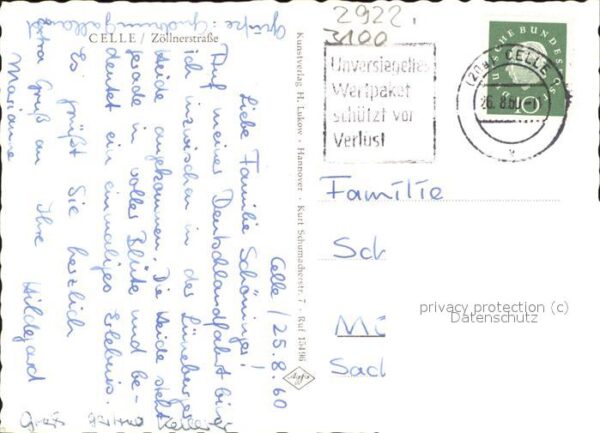 CELLE / Zöllnerstraße
Celle / 25.8.60
Liebe Familie Schöninger!
Auf meiner Deutschlandfahrt bin
ich inzwischen in der Lüneburger
Heide angekommen. Die Heide steht
gerade in voller Blüte und be-
deutet ein einmaliges Erlebnis.
Es grüßt Sie herzlich
Ihre Hildegard
Extra Gruß an Marianne
Grüße:
Kunstverlag H. Lukow · Hannover · Kurt Schumacherstr. 7 · Ruf 15496
2922.
3100
Unversiegeltes
Wertpaket
schützt vor
Verlust
(20a) CELLE
26.8.60
DEUTSCHE BUNDESPOST
10
Familie
Sch
Mü
Sad
privacy protection (c)
Datenschutz